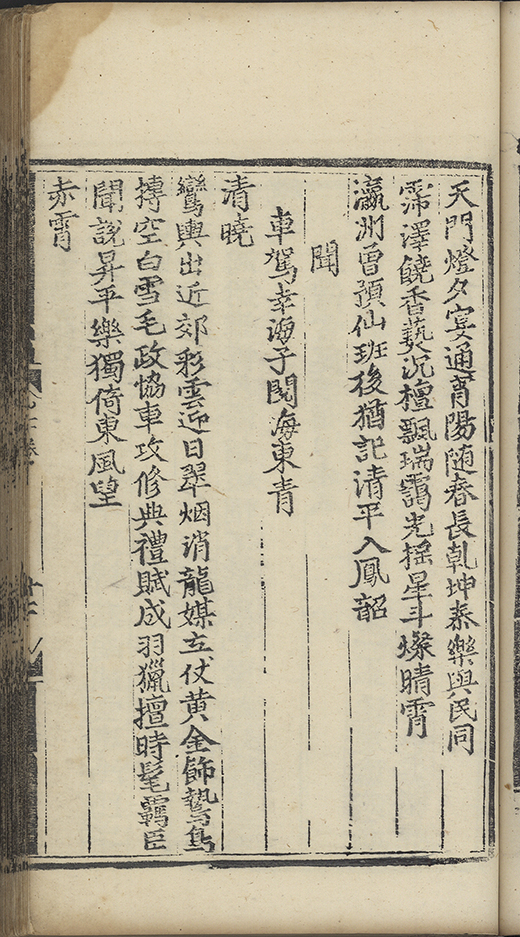 天門燈夕宴通宵陽随春長乾坤泰樂與民同
霈澤饒香爇沉檀飄瑞靄光揺星斗燦晴霄
瀛洲曽預仙班後猶記清平入鳳韶
聞
車駕幸海子閱海東青
清曉
鸞輿出近郊彩雲迎日翠烟消龍媒立仗黄金飾鷙鳥
摶空白雪毛政協車攻修典禮賦成羽獵擅時髦羇臣
聞說昇平樂獨倚東風望
赤霄